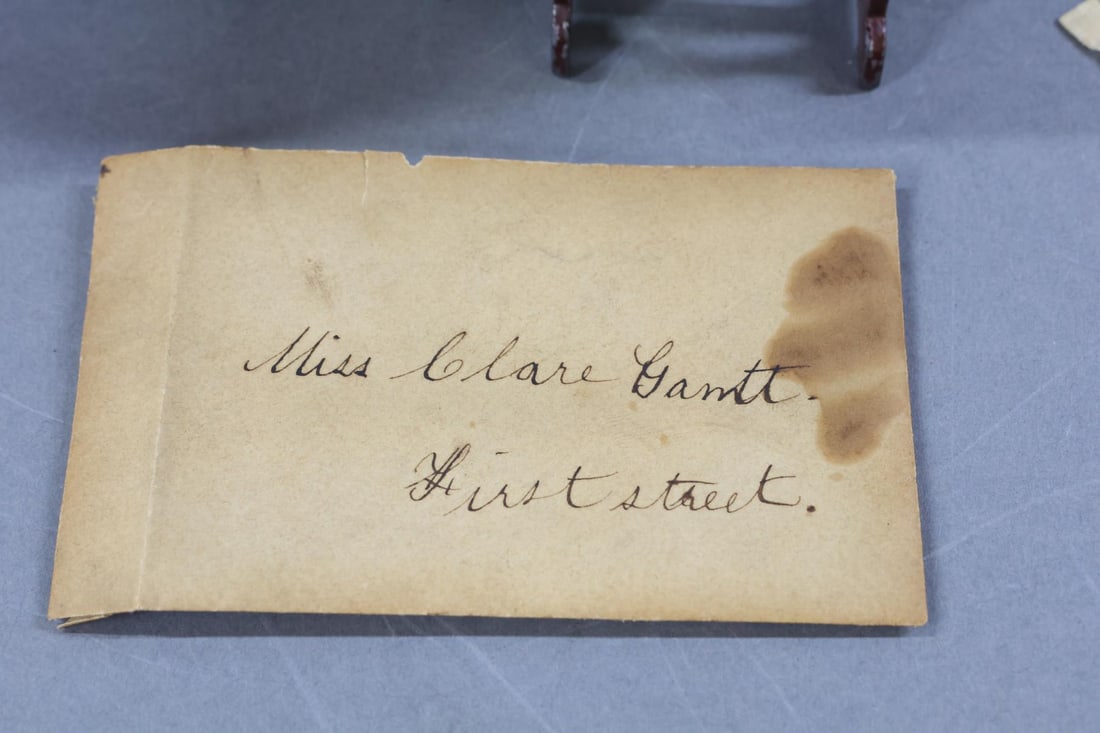 Miss Clare Gantt.
First street.